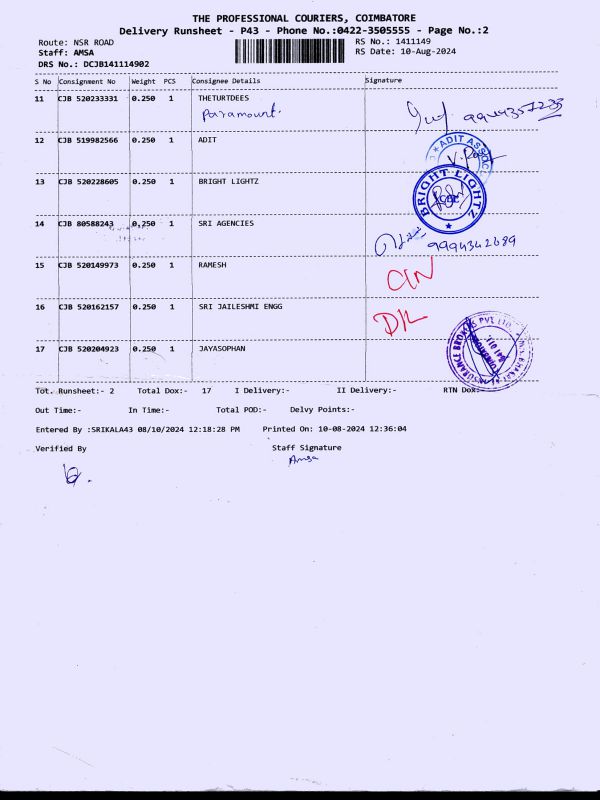 THE PROFESSIONAL COURIERS, COIMBATORE
Delivery Runsheet - P43 - Phone No.:0422-3505555 - Page No.:2
Route: NSR ROAD RS No.: 1411149
Staff: AMSA RS Date: 10-Aug-2024
DRS No.: DCJB141114902
S No Consignment No Weight PCS Consignee Details Signature
11 CJB 520233331 0.250 1 THETURTDEES
Paramount.
12 CJB 519982566 0.250 1 ADIT
ADIT ASSOC
13 CJB 520228605 0.250 1 BRIGHT LIGHTZ
BRIGHT LIGHTZ
14 CJB 80588243 0.250 1 SRI AGENCIES
9994342689
15 CJB 520149973 0.250 1 RAMESH
CIN
16 CJB 520162157 0.250 1 SRI JAILESHMI ENGG
DK
17 CJB 520204923 0.250 1 JAYASOPHAN
INSURANCE BROKERS PVT LTD
Tot. Runsheet:- 2 Total Dox:- 17 I Delivery:- II Delivery:- RTN Dox:-
Out Time:- In Time:- Total POD:- Delvy Points:-
Entered By :SRIKALA43 08/10/2024 12:18:28 PM Printed On: 10-08-2024 12:36:04
Verified By Staff Signature
Amsa